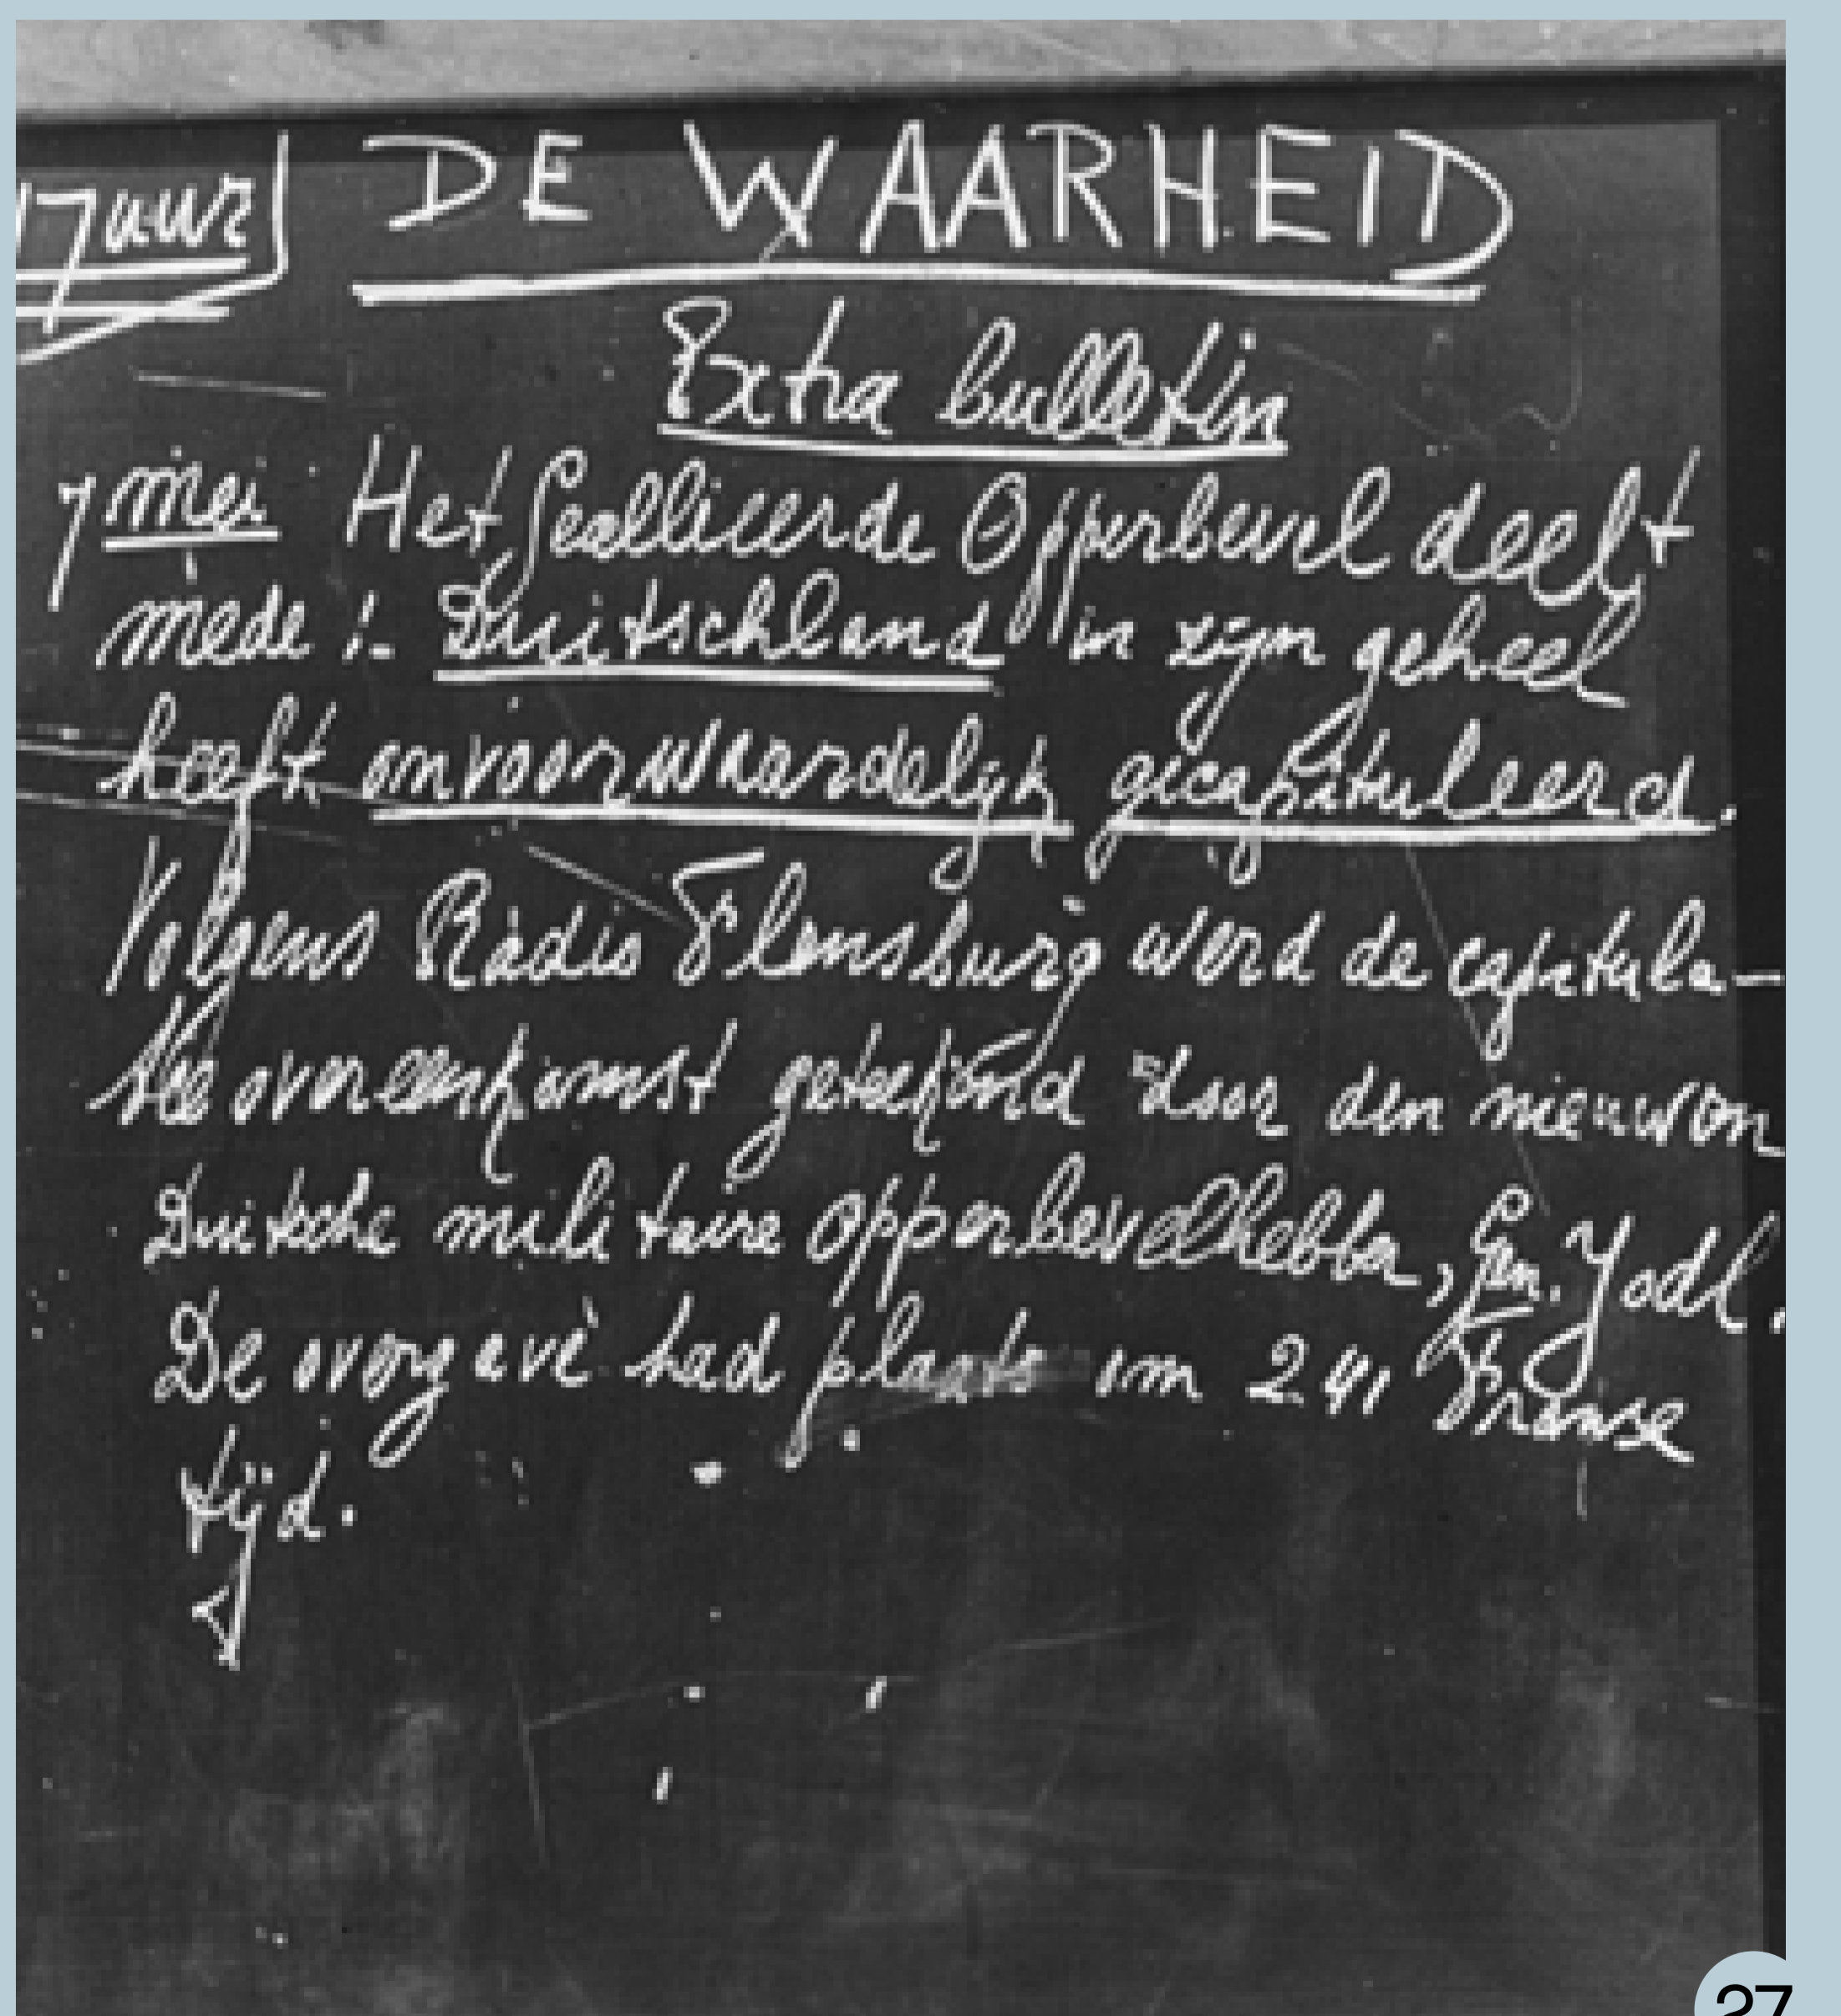 17 uur
DE WAARHEID
Extra bulletin
7 mei Het Geallieerde Opperbevel deelt
mede :- Duitschland in zijn geheel
heeft onvoorwaardelijk gecapituleerd.
Volgens Radio Flensburg werd de capitula-
tie overeenkomst getekend door den nieuwen
Duitsche militaire opperbevelhebber, Gen. Jodl.
De overgave had plaats om 2.41 Franse
tijd.
27